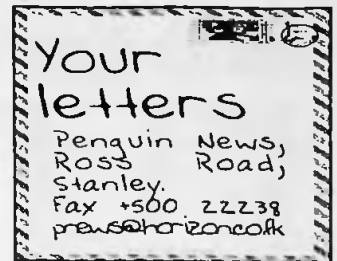 Your
letters
Penguin News,
Ross Road,
Stanley.
Fax +500 22238
pnews@horizon.co.fk